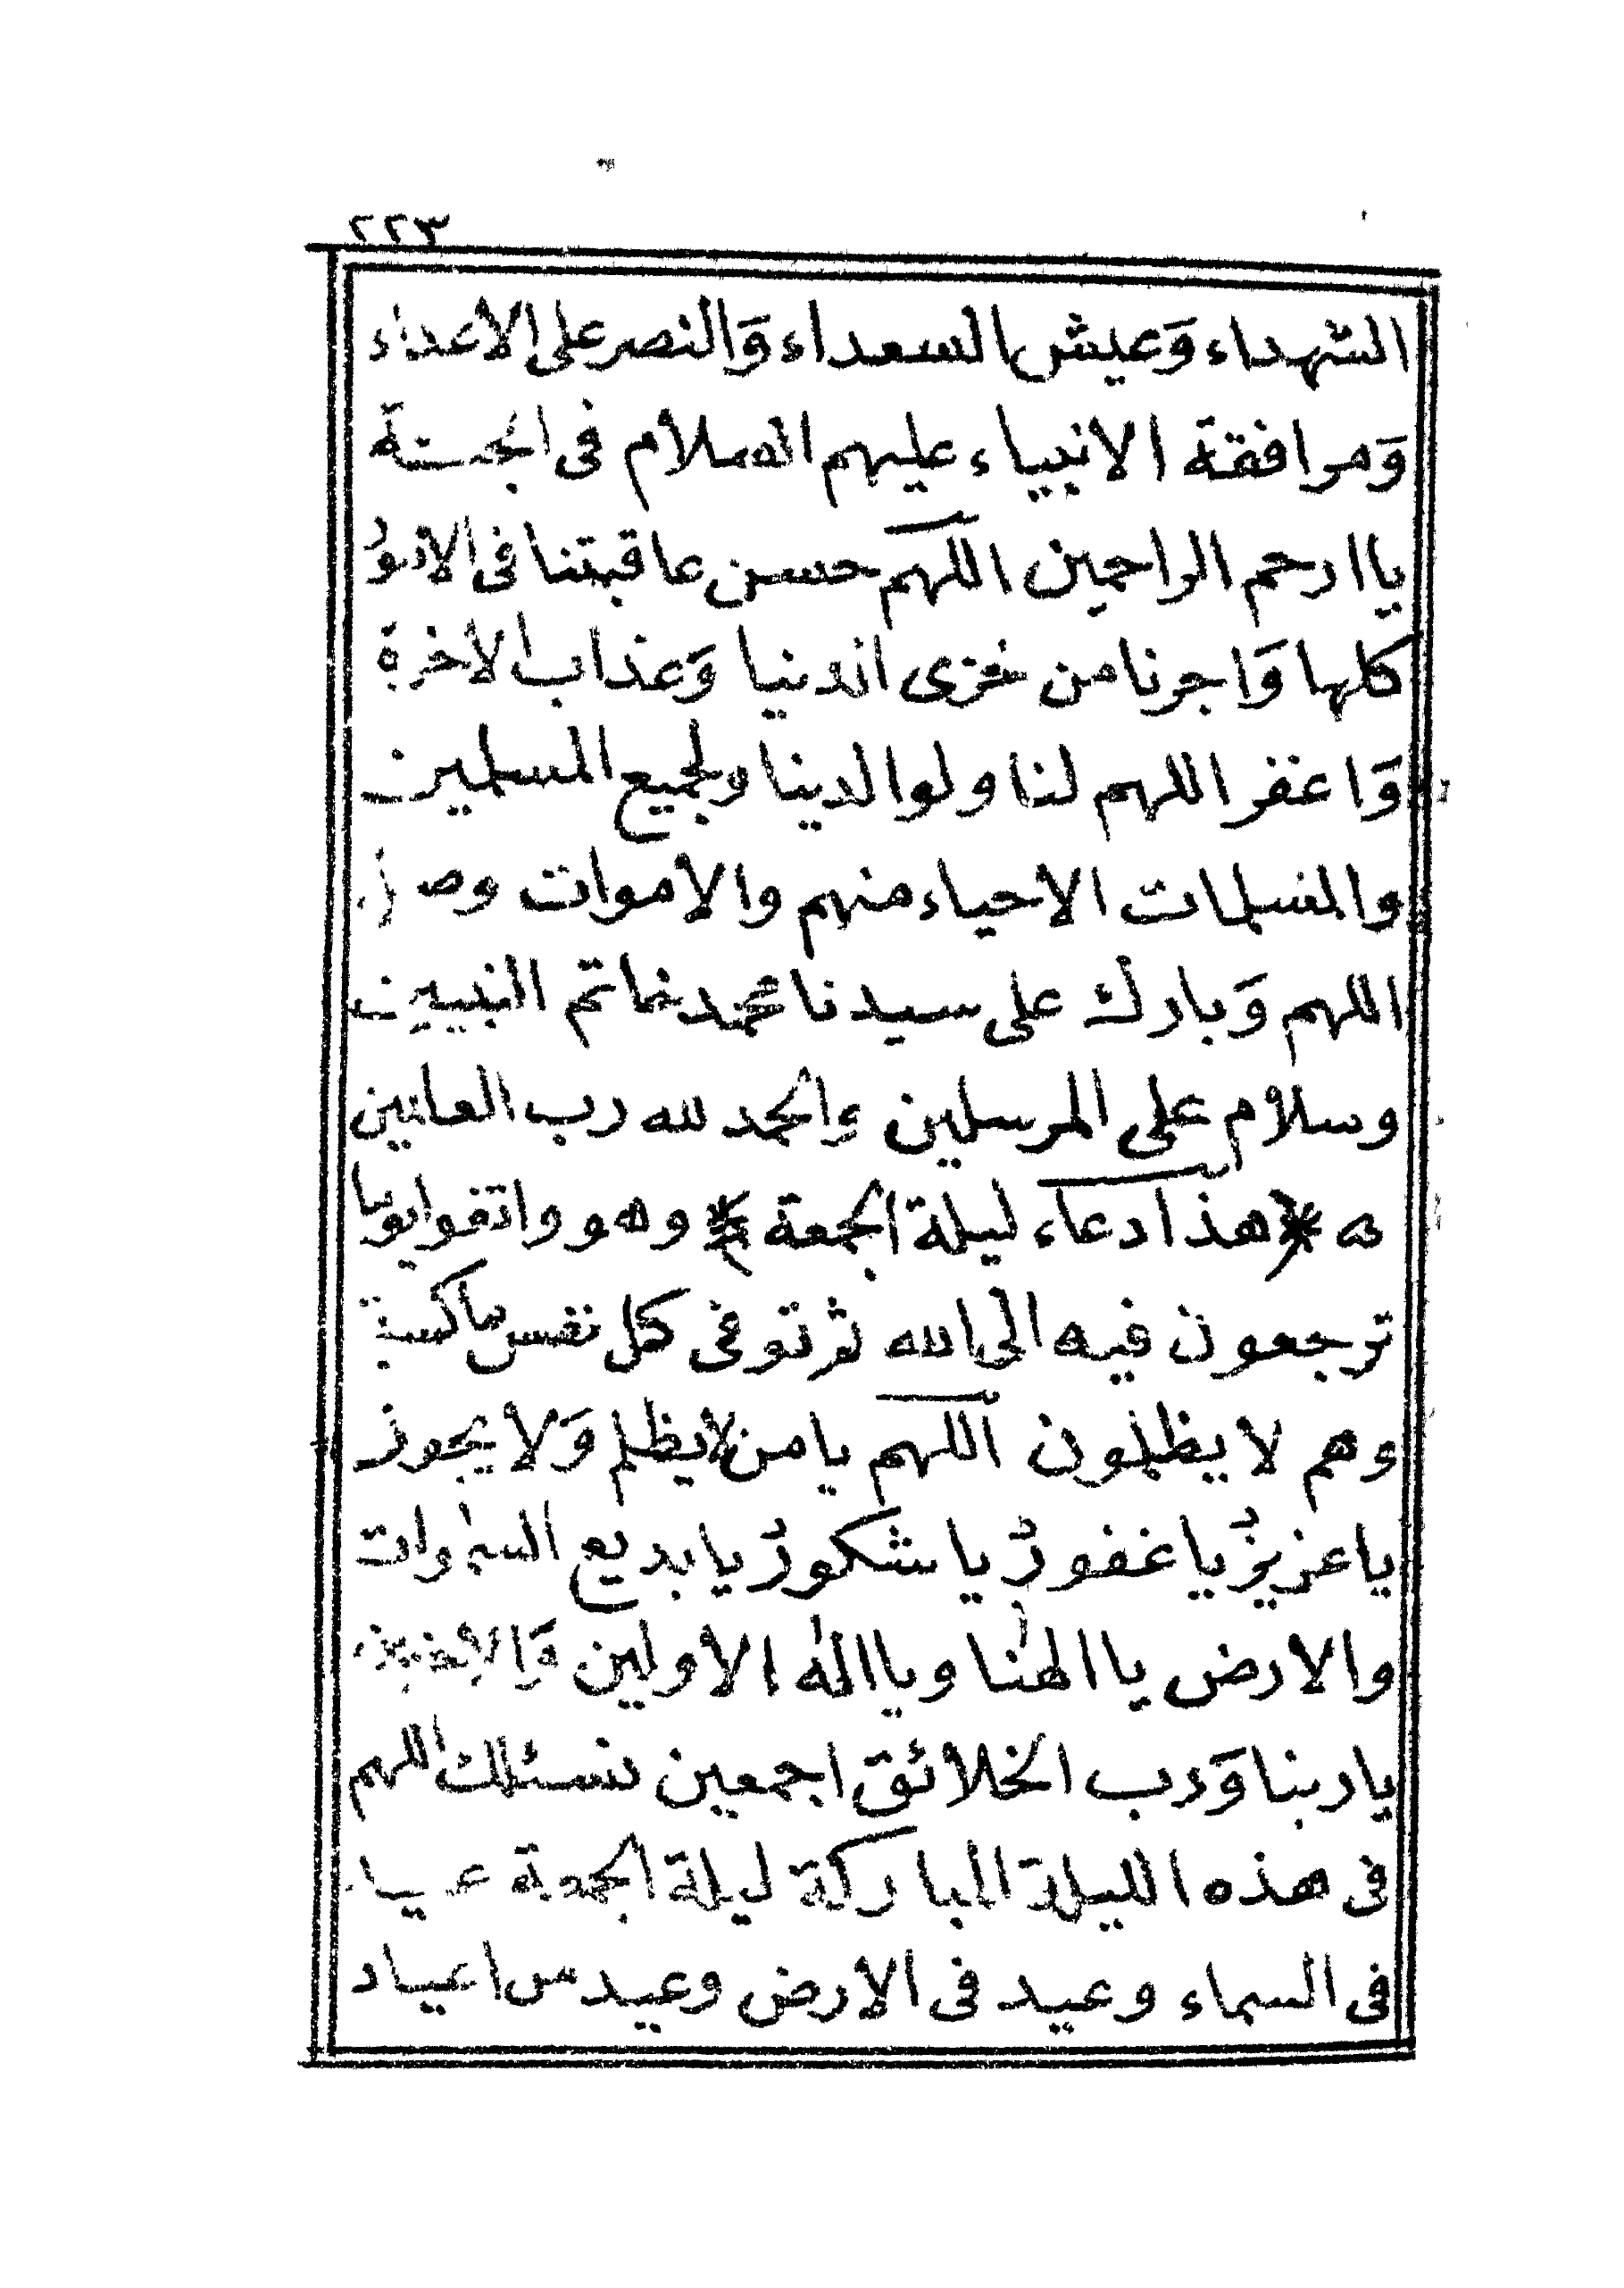 ٢٢٣
الشهداء وَعيش السعداء وَالنصر على الاعداء
وَمرافقة الانبياء عليهم السلام فى الجنة
يا ارحم الراحمين اللهم حسن عاقبتنا فى الامور
كلها وَاجرنا من خزى الدنيا وَعذاب الاخرة
وَاغفر اللهم لنا ولوالدينا ولجميع المسلمين
والمسلمات الاحياء منهم والاموات وصل
اللهم وَبارك على سيدنا محمد خاتم النبيين
وسلام على المرسلين والحمد لله رب العالمين
هذا دعاء ليلة الجمعة وهو واتقوا يوما
ترجعون فيه الى الله ثم توفى كل نفس ما كسبت
وهم لا يظلمون اللهم يا من لا يظلم وَلا يجوز
يا عزيزُ يا غفورُ يا شكورُ يا بديع السموات
والارض يا الهنا ويا اله الاولين وَالاخرين
يا ربنا وَرب الخلائق اجمعين نسئلك اللهم
فى هذه الليلة المباركة ليلة الجمعة عيد
فى السماء وعيد فى الارض وعيد من اعياد